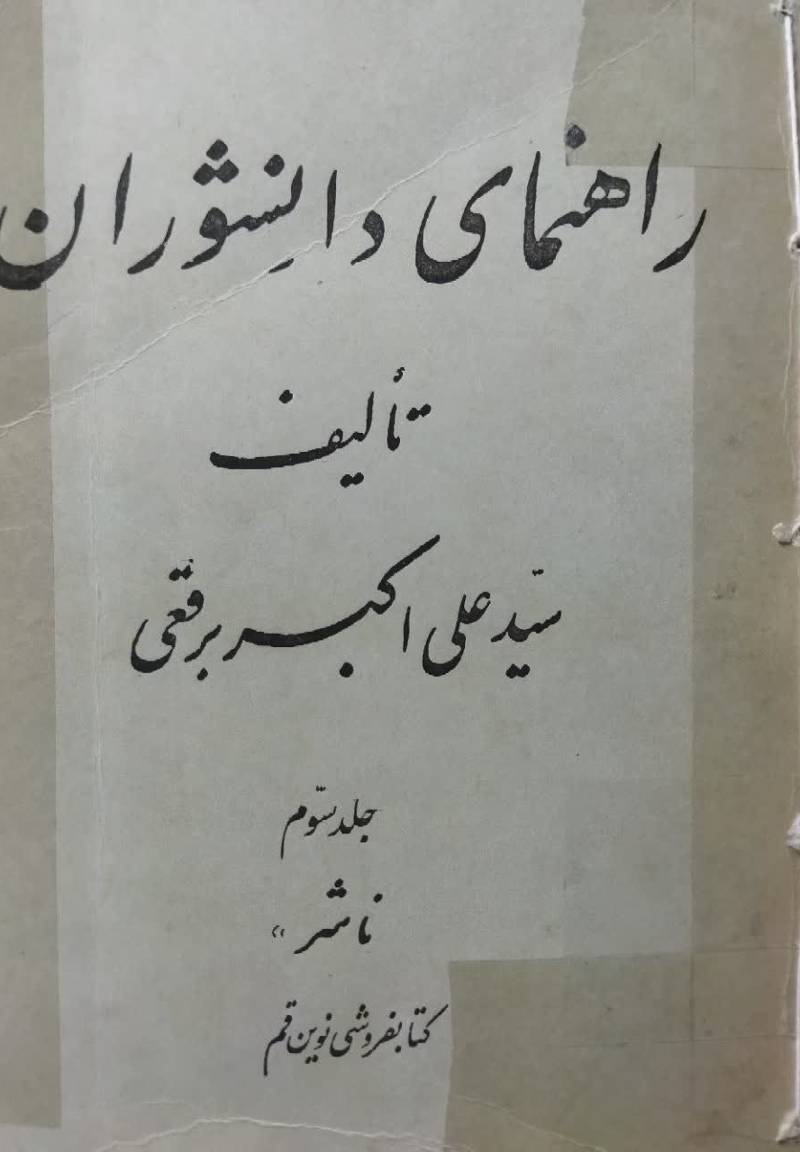 راهنمای دانشوران
تألیف
سیّد علی اکبر برقعی
جلد سوّم
ناشر «
کتابفروشی نوین قم